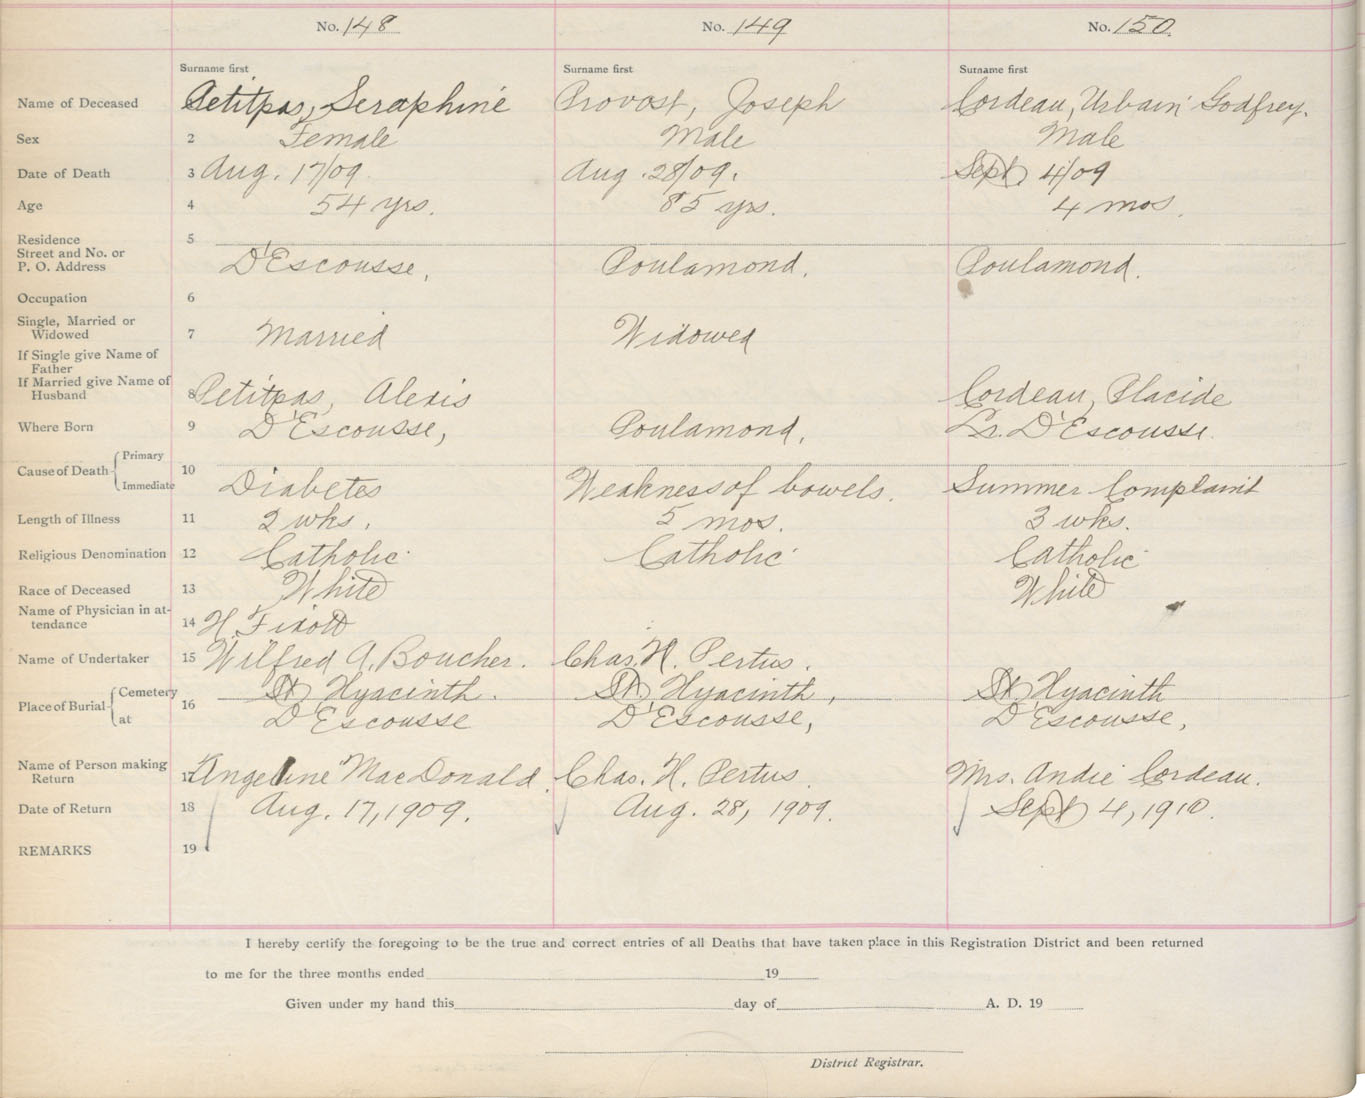 No. 148 No. 149 No. 150
Surname first Surname first Surname first
Name of Deceased Petitpas, Seraphine Provost, Joseph Cordeau, Urbain Godfrey.
Sex 2 Female Male Male
Date of Death 3 Aug. 17/09. Aug. 28/09. Sept. 4/09
Age 4 54 yrs. 85 yrs. 4 mos.
Residence 5
Street and No. or
P. O. Address D'Escousse, Poulamond, Poulamond.
Occupation 6
Single, Married or
Widowed 7 Married Widowed
If Single give Name of
Father
If Married give Name of
Husband 8 Petitpas, Alexis Cordeau, Placide
Where Born 9 D'Escousse, Poulamond, D'Escousse.
Cause of Death Primary 10
Immediate Diabetes Weakness of bowels. Summer Complaint
Length of Illness 11 2 wks. 5 mos. 3 wks.
Religious Denomination 12 Catholic Catholic Catholic
Race of Deceased 13 White White
Name of Physician in at-
tendance 14 H. Fixott
Name of Undertaker 15 Wilfred A. Boucher. Chas. H. Pertus.
Place of Burial Cemetery 16 St. Hyacinth. St. Hyacinth, St. Hyacinth
at D'Escousse D'Escousse, D'Escousse,
Name of Person making
Return 17 Angeline MacDonald. Chas. H. Pertus. Mrs. Andie Cordeau.
Date of Return 18 Aug. 17, 1909. Aug. 28, 1909. Sept 4, 1910.
REMARKS 19
I hereby certify the foregoing to be the true and correct entries of all Deaths that have taken place in this Registration District and been returned
to me for the three months ended 19
Given under my hand this day of A. D. 19
District Registrar.